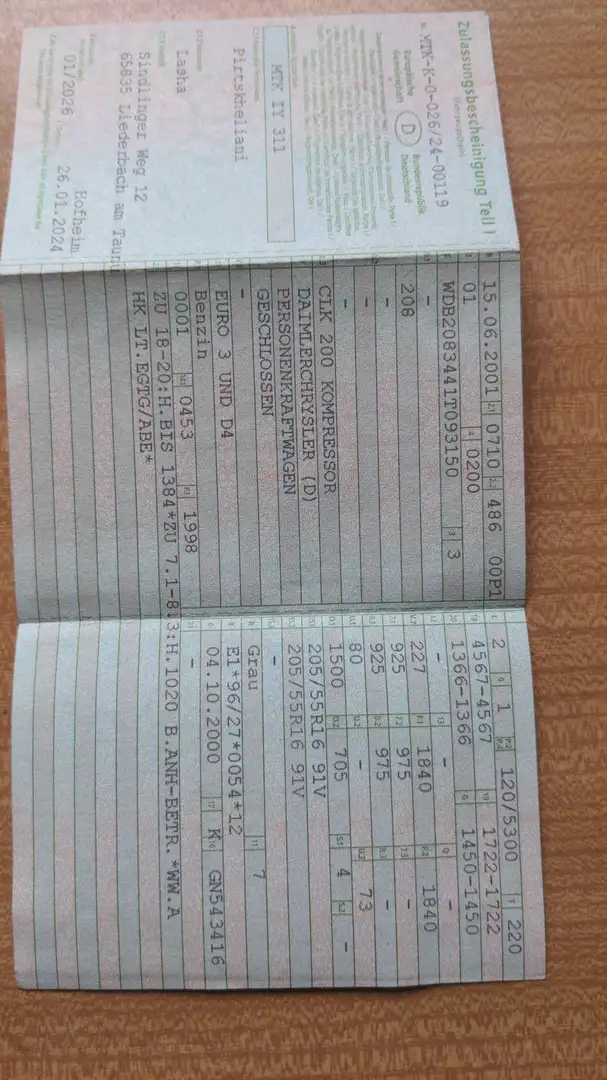 Zulassungsbescheinigung Teil I
(Fahrzeugschein)
Nr. MTK-K-0-026/24-00119
Europäische Gemeinschaft
D
Bundesrepublik Deutschland
MTK IY 311
Pirtskheliani
Lasha
Sindlinger Weg 12
65835 Liederbach am Taunu
Hofheim
01/2026
26.01.2024
B 15.06.2001 2.1 0710 2.2 486 00P1
J 01 4 0200
E WDB2083441T093150 3 3
-
208
-
-
-
CLK 200 KOMPRESSOR
DAIMLERCHRYSLER (D)
PERSONENKRAFTWAGEN
GESCHLOSSEN
-
EURO 3 UND D4
Benzin
0001 14.1 0453 P.1 1998
ZU 18-20:H.BIS 1384*ZU 7.1-8.3:H.1020 B.ANH-BETR.*WW.A
HK LT.EGTG/ABE*
L 2 9 1 P.2 P.4 120/5300 T 220
18 4567-4567 19 1722-1722
20 1366-1366 G 1450-1450
12 - 13 - Q -
V.7 227 F.1 1840 F.2 1840
7.1 925 7.2 975 7.3 -
8.1 925 8.2 975 8.3 -
U.1 80 U.2 - U.3 73
O.1 1500 O.2 705 S.1 4 S.2 -
15.1 205/55R16 91V
15.2 205/55R16 91V
15.3 -
R Grau 11 7
K E1*96/27*0054*12
6 04.10.2000 17 K 16 GN543416
21 -